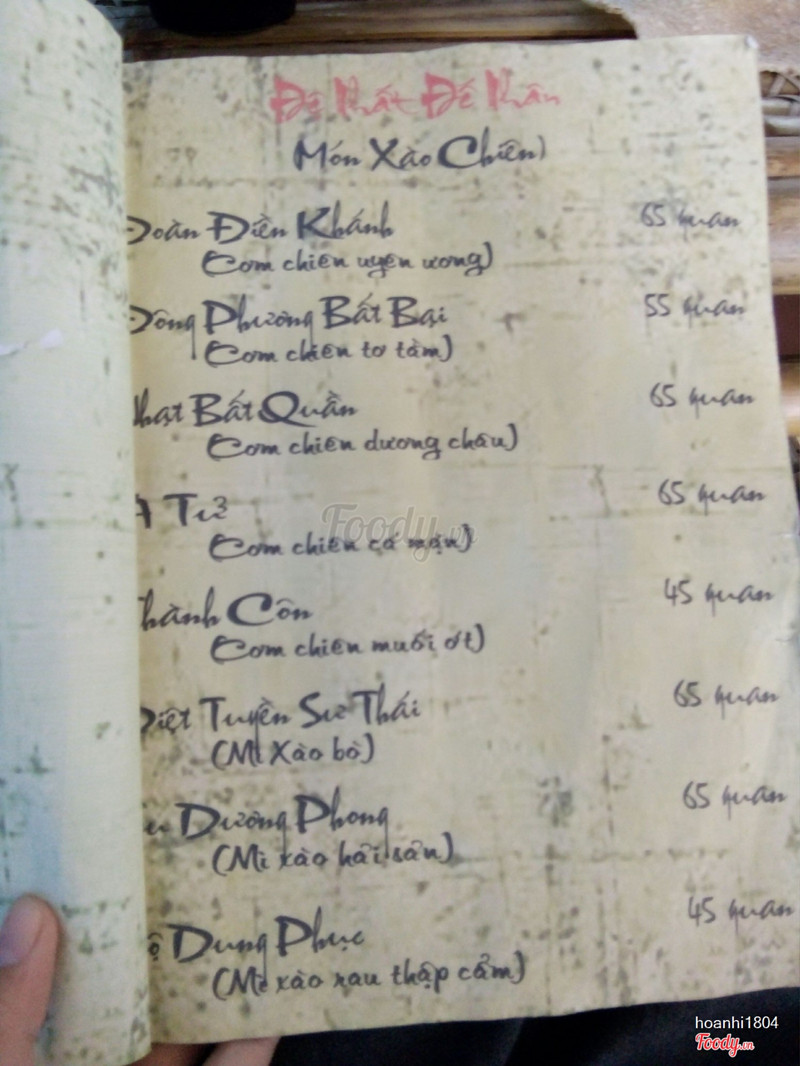 Đệ Nhất Đế Nhân
Món Xào Chiên)
Đoàn Điền Khánh 65 quan
(Cơm chiên uyên ương)
Đông Phương Bất Bại 55 quan
(Cơm chiên tơ tằm)
Nhạt Bất Quần 65 quan
(Cơm chiên dương châu)
A Tử 65 quan
(Cơm chiên cá mặn)
Thành Côn 45 quan
(Cơm chiên muối ớt)
Diệt Tuyền Sư Thái 65 quan
(Mì Xào bò)
Dương Phong 65 quan
(Mì xào hải sản)
Dung Phục 45 quan
(Mì xào rau thập cẩm)
Foody.vn
hoanhi1804
Foody.vn